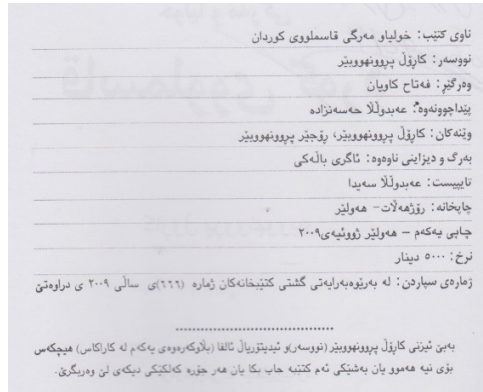 ناوی کتێب: خولیاو مەرگی قاسملووی کوردان
نووسەر: کارۆڵ پروونهووبێر
وەرگێر: فەتاح کاویان
پێداچوونەوە: عەبدوڵڵا حەسەنزادە
وێنەکان: کارۆڵ پروونهووبێر، رۆجێر پروونهووبێر
بەرگ و دیزاینی ناوەوە: ئاگری بالەکی
تایپیست: عەبدوڵڵا سەیدا
چاپخانە: رۆژهەڵات- هەولێر
چاپی یەکەم – هەولێر ژووئیەی٢٠٠٩
نرخ: ٥٠٠٠ دینار
ژمارەی سپاردن: لە بەرێوەبەرایەتی گشتی کتێبخانەکان ژمارە (٦٦٦)ی ساڵی ٢٠٠٩ ی دراوەتێ
....................................
بەبێ ئیزنی کارۆڵ پروونهووبێر (نووسەر)و ئیدیتۆریاڵ ئالفا (بڵاوکەرەوەی یەکەم لە کاراکاس) هیچکەس
بۆی نیە هەموو یان بەشێکی ئەم کتێبە چاپ بکا یان هەر جۆرە کەلکێکی دیکەی لێ وەربگرێ.